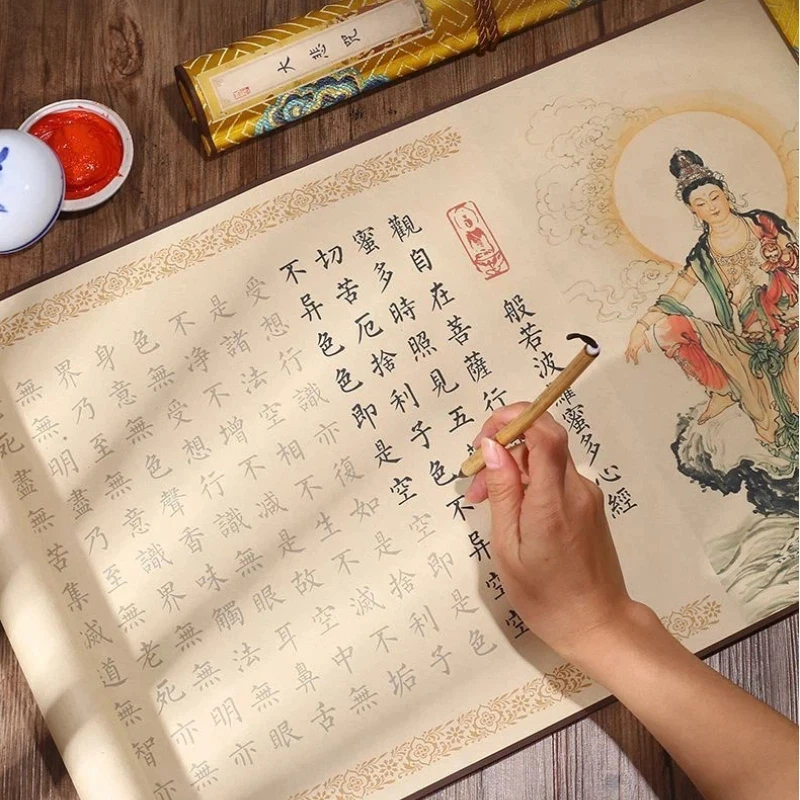 大悲咒
般若波羅蜜多心經
觀自在菩薩行
蜜多時照見五
切苦厄捨利子色不異空空
不异色色即是空空即是色
受想行識亦復如是捨利子
是諸法空相不生不滅不垢
不净不增不減是故空中無
色無受想行識無眼耳鼻舌
身意無色聲香味觸法無眼
界乃至無意識界無無明亦
無無明盡乃至無老死亦無
死盡無苦集滅道無智亦